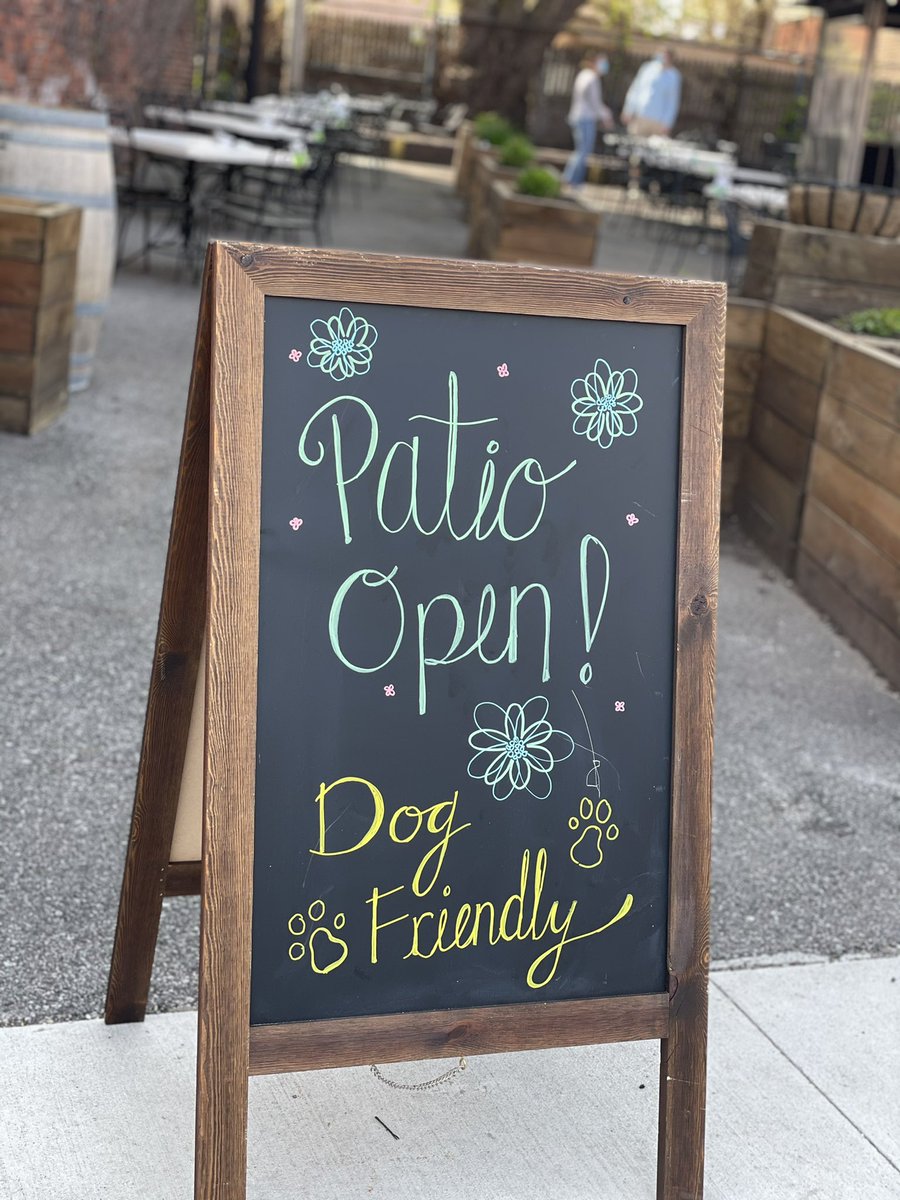 Patio
Open!
Dog
Friendly